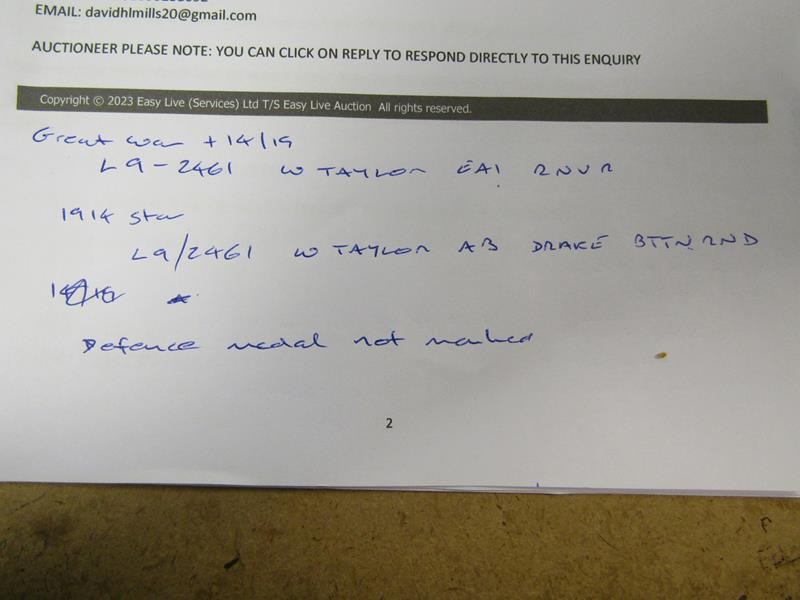 EMAIL: davidhlmills20@gmail.com
AUCTIONEER PLEASE NOTE: YOU CAN CLICK ON REPLY TO RESPOND DIRECTLY TO THIS ENQUIRY
Copyright © 2023 Easy Live (Services) Ltd T/S Easy Live Auction All rights reserved.
Great war + 14/19
L9-2461 W TAYLOR EA1 RNVR
1914 Star
L9/2461 W TAYLOR AB DRAKE BTTN. RND
Defence medal not marked
2